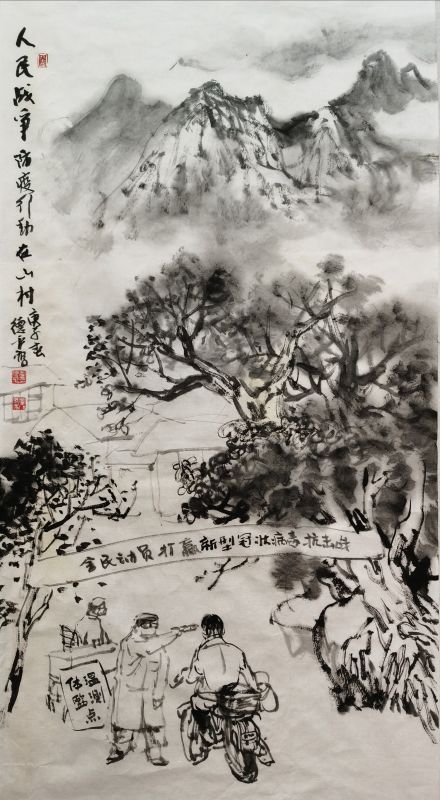 人民战争 防疫行动在山村
庚子春
全民动员 打赢新型冠状病毒抗击战
体温
监测点